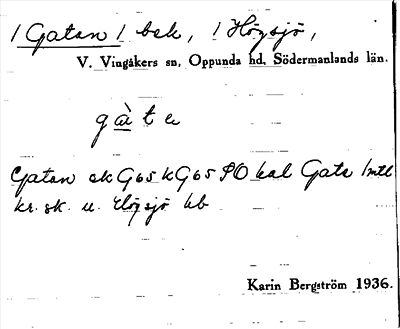 / Gatan / bek, / Högsjö,
V. Vingåkers sn, Oppunda hd, Södermanlands län.
gàta
Gatan ek G65 k G65 PO kal Gata Intl
kr. sk. u. Högsjö hb
Karin Bergström 1936.